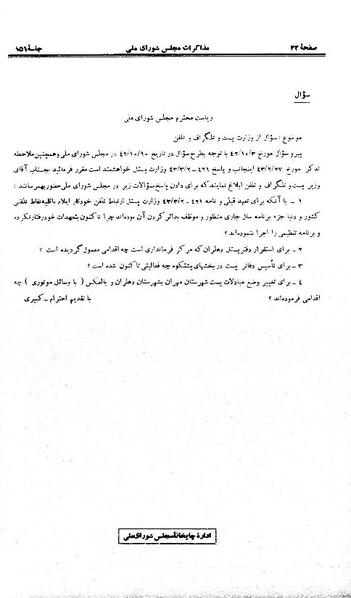 صفحهٔ ۲۲ مذاکرات مجلس شورای ملی جلسهٔ ۱۵۱
سؤال
ریاست محترم مجلس شورای ملی
موضوع : سؤال از وزارت پست و تلگراف و تلفن
پیرو سؤال مورخ ۴۲/۱۰/۳ با توجه بطرح سؤال در تاریخ ۴۲/۱۰/۱۰ در مجلس شورای ملی و همچنین ملاحظه
تذکر مورخ ۴۳/۲/۲۷ اینجانب و پاسخ ۴۲۱ - ۴۳/۳/۲ وزارت پستل خواهشمند است مقرر فرمائید جناب آقای
وزیر پست و تلگراف و تلفن ابلاغ نمایند که برای دادن پاسخ سؤالات زیر در مجلس شورای ملی حضور بهمرسانند :
۱ - با آنکه برای تعهد قبلی و نامه ۴۲۱ - ۴۳/۳/۲ وزارت پستل ارتباط تلفن خودکار ایلام با کلیه نقاط تلفنی
کشور و دنیا جزء برنامه سال جاری منظور و موظف بدائر کردن آن بوده‌اند چرا تا کنون بتعهدات خود رفتار نکرده
و برنامه تنظیمی را اجرا ننموده‌اند ؟
۲ - برای استقرار دفتر پستل دهلران که مرکز فرمانداری است چه اقدامی معمول گردیده است ؟
۳ - برای تأسیس دفاتر پست در بخشهای پشتکوه چه فعالیتی تا کنون شده است ؟
۴ - برای تغییر وضع مبادلات پست شهرستان مهران بشهرستان دهلران و بالعکس ( با وسائل موتوری ) چه
اقدامی فرموده‌اند ؟ با تقدیم احترام - کبیری
ادارهٔ چاپخانهٔ مجلس شورای ملی